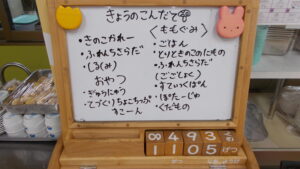 きょうのこんだて
・きのこかれー
・ふれんちさらだ
・(るくみ)
おやつ
・ぎゅうにゅう
・てづくりちょこちっぷ
すこーん
<ももぐみ>
・ごはん
・とりときのこのにもの
・ふれんちさらだ
(ごごしょく)
・すてぃっくぱん
・ぽたーじゅ
・くだもの
8 4 9 3
1 1 0 5 げつ